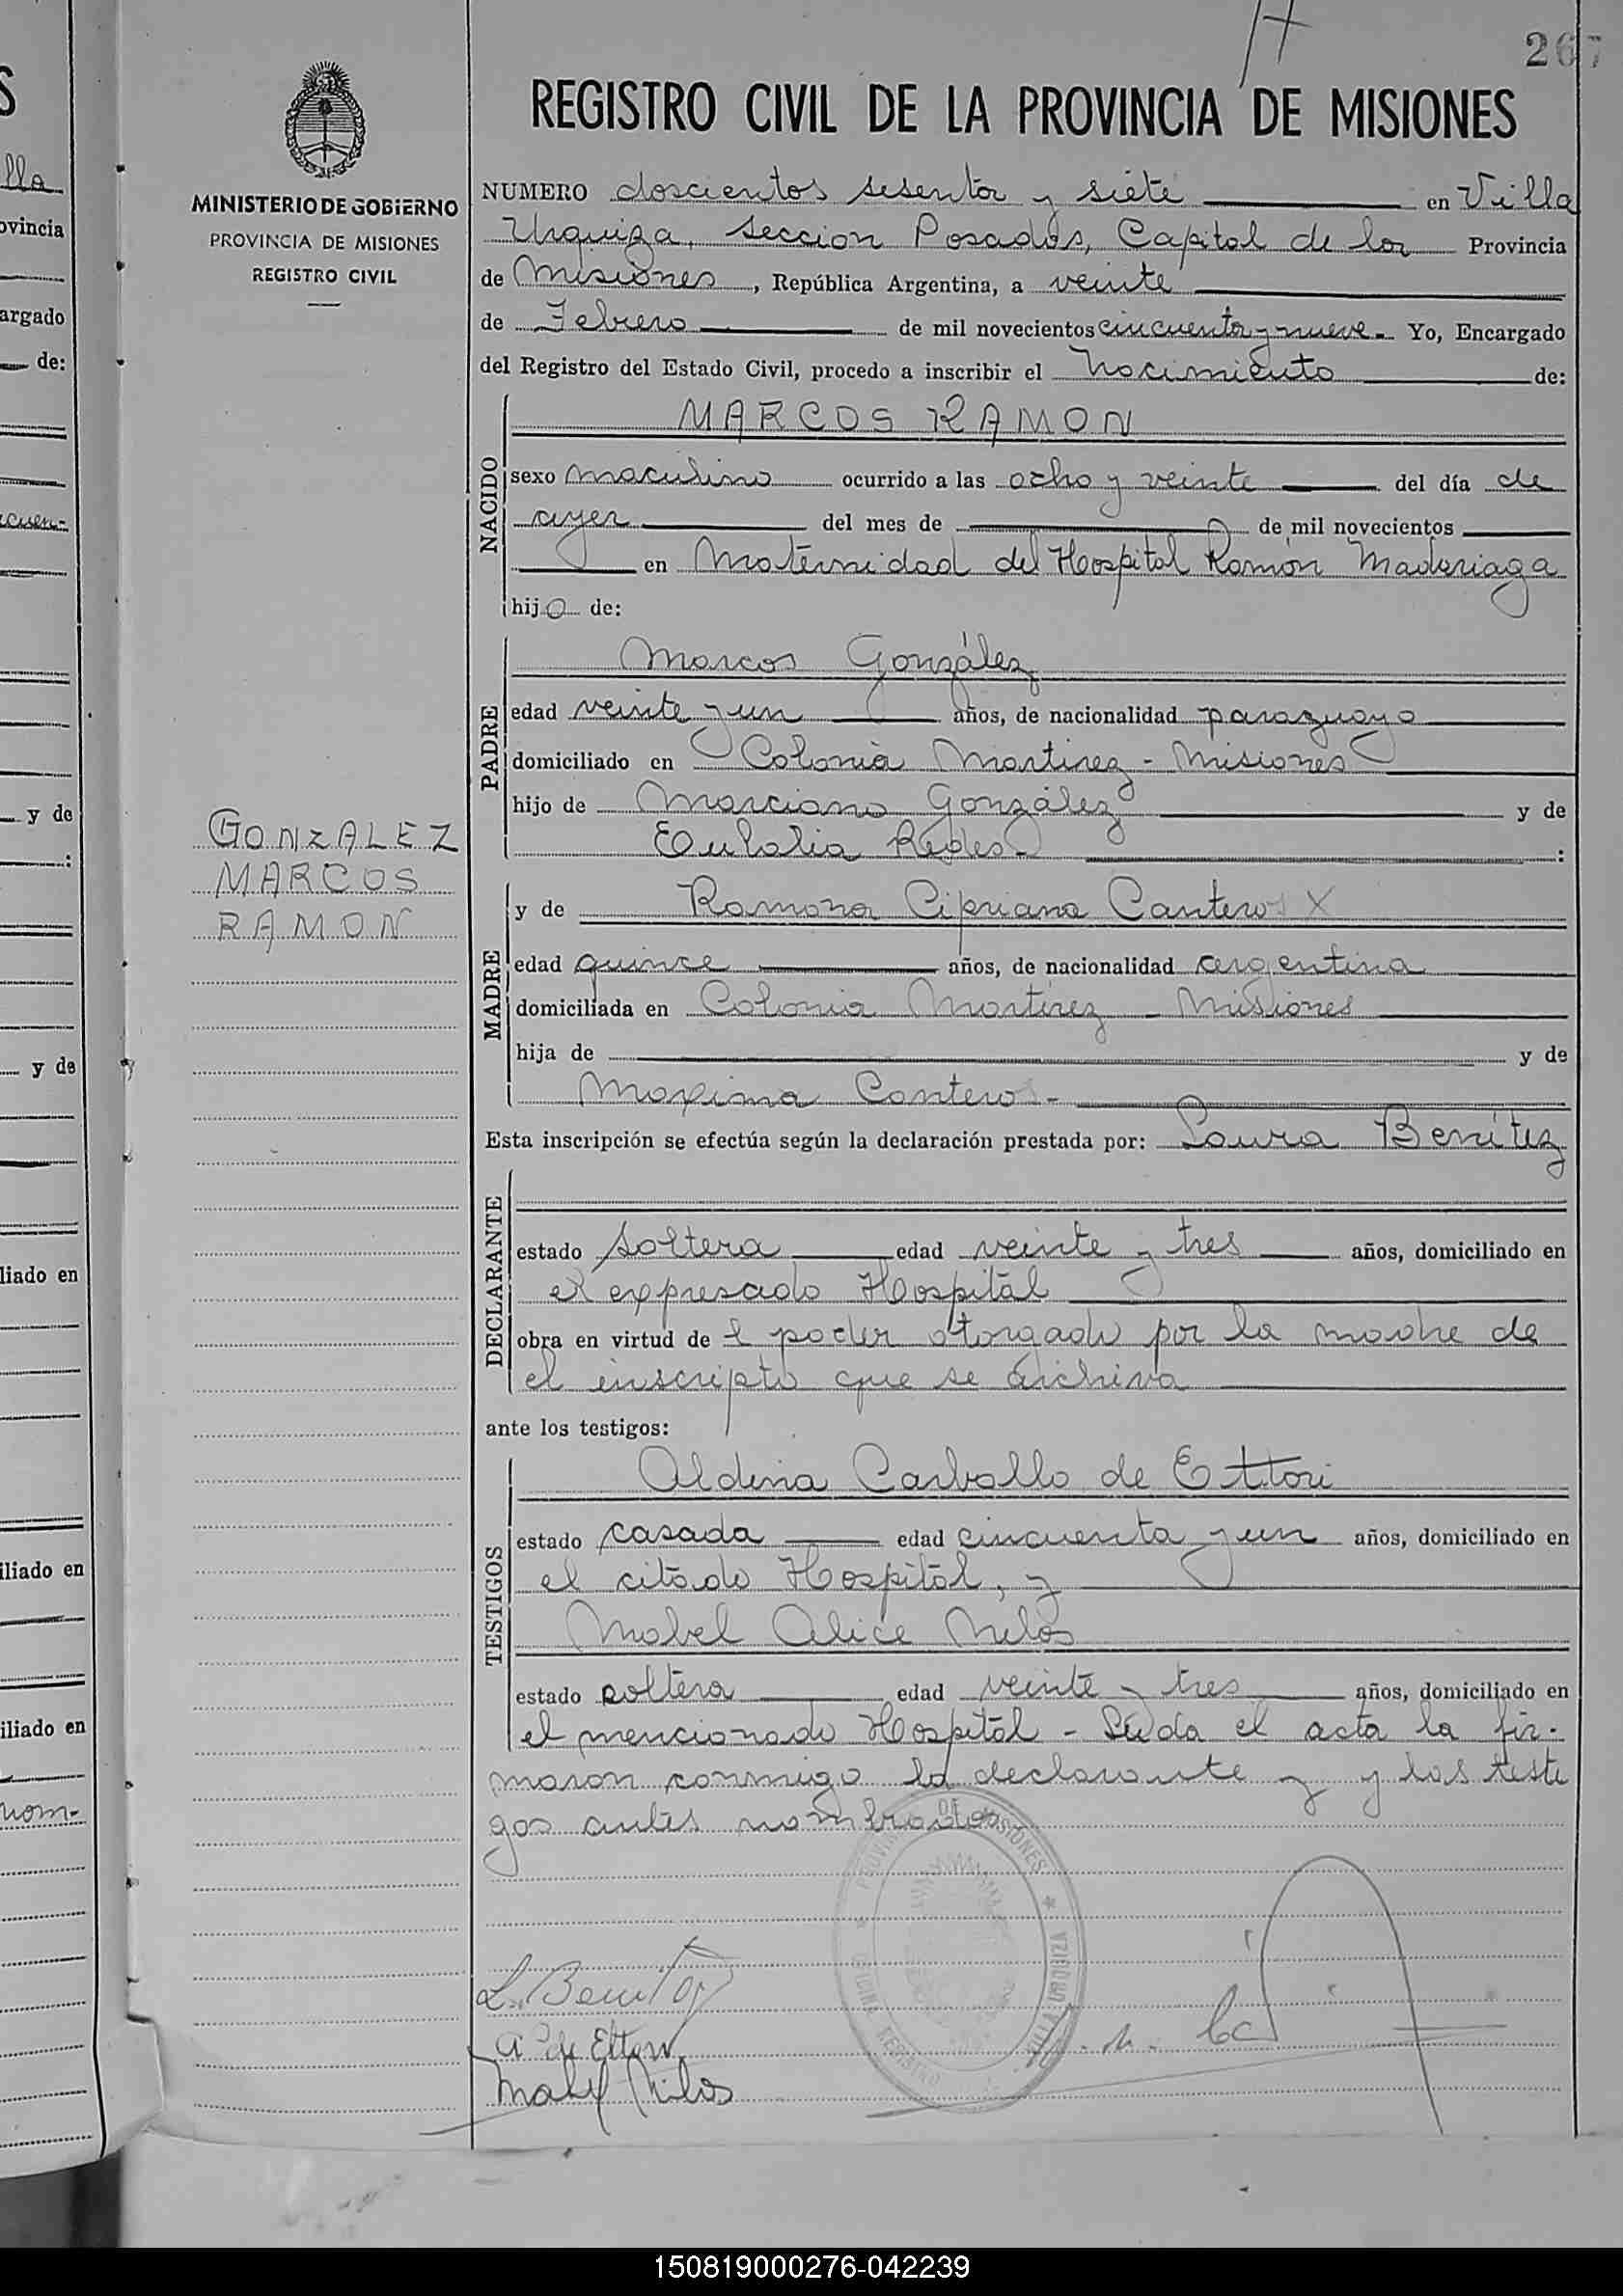 267
REGISTRO CIVIL DE LA PROVINCIA DE MISIONES
MINISTERIO DE GOBIERNO
PROVINCIA DE MISIONES
REGISTRO CIVIL
NUMERO doscientos sesenta y siete en Villa
Urquiza, seccion Posadas, Capital de la Provincia
de Misiones, República Argentina, a veinte
de Febrero de mil novecientos cincuenta y nueve. Yo, Encargado
del Registro del Estado Civil, procedo a inscribir el nacimiento de:
NACIDO
MARCOS RAMON
sexo masculino ocurrido a las ocho y veinte del día de
ayer del mes de de mil novecientos
en Maternidad del Hospital Ramón Madariaga
hijo de:
PADRE
Marcos González
edad veinte y un años, de nacionalidad paraguayo
domiciliado en Colonia Martinez - Misiones
hijo de Marciano González y de
Eulalia :
GONZALEZ
MARCOS
RAMON
MADRE
y de Ramona Cipriana Cantero X
edad quince años, de nacionalidad argentina
domiciliada en Colonia Martinez - Misiones
hija de y de
Maxima Cantero -
Esta inscripción se efectúa según la declaración prestada por: Laura Benítez
DECLARANTE
estado soltera edad veinte y tres años, domiciliado en
el expresado Hospital
obra en virtud de l poder otorgado por la madre de
el inscripto que se archiva
ante los testigos:
TESTIGOS
Aldina Carballo de Ettori
estado casada edad cincuenta y un años, domiciliado en
el citado Hospital, y
Mabel Alice Milos
estado soltera edad veinte y tres años, domiciliado en
el mencionado Hospital - Leída el acta la fir-
maron conmigo la declarante y y los testi
gos antes nombrados
L. Benitez
A C de Ettori
Mabel Milos
PROVINCIA DE MISIONES * VILLA URQUIZA
OFICINA REGISTRO
ovincia
argado
de:
y de
y de
liado en
iliado en
iliado en
nom-
150819000276-042239